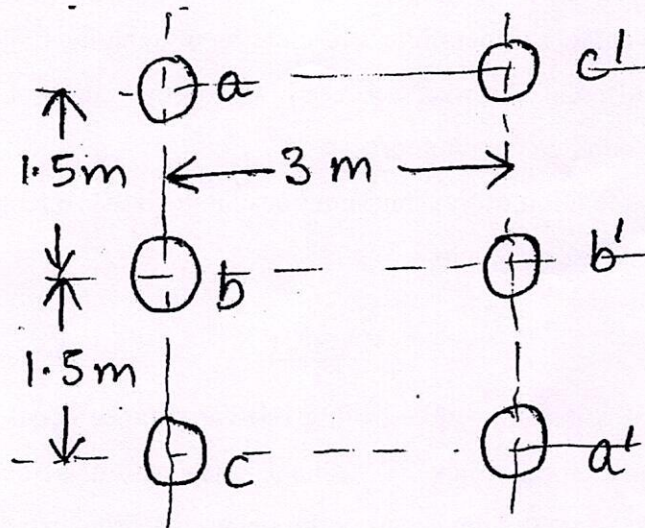 a c'
1.5m
3 m
b b'
1.5m
c a'